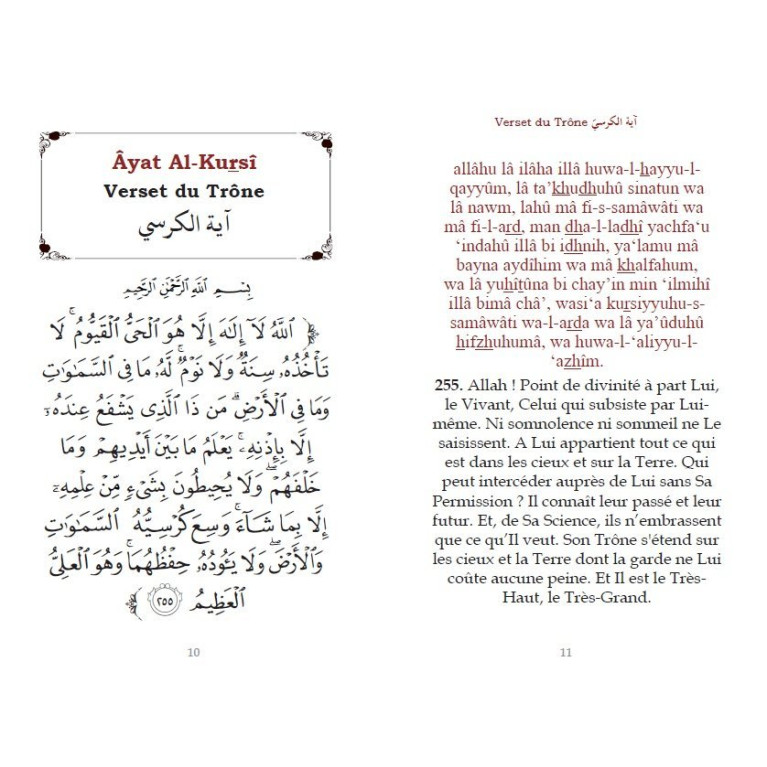 Âyat Al-Kursî
Verset du Trône
آية الكرسي
بِسْمِ اللَّهِ الرَّحْمَٰنِ الرَّحِيمِ
﴿ اللَّهُ لَآ إِلَٰهَ إِلَّا هُوَ الْحَيُّ الْقَيُّومُ ۚ لَا
تَأْخُذُهُۥ سِنَةٌ وَلَا نَوْمٌ ۚ لَّهُۥ مَا فِى السَّمَٰوَٰتِ
وَمَا فِى الْأَرْضِ ۗ مَن ذَا الَّذِى يَشْفَعُ عِندَهُۥٓ
إِلَّا بِإِذْنِهِۦ ۚ يَعْلَمُ مَا بَيْنَ أَيْدِيهِمْ وَمَا
خَلْفَهُمْ ۖ وَلَا يُحِيطُونَ بِشَىْءٍ مِّنْ عِلْمِهِۦٓ
إِلَّا بِمَا شَآءَ ۚ وَسِعَ كُرْسِيُّهُ السَّمَٰوَٰتِ
وَالْأَرْضَ ۖ وَلَا يَـُٔودُهُۥ حِفْظُهُمَا ۚ وَهُوَ الْعَلِىُّ
الْعَظِيمُ ٢٥٥ ﴾
10
Verset du Trône آية الكرسيّ
allâhu lâ ilâha illâ huwa-l-hayyu-l-
qayyûm, lâ ta’khudhuhû sinatun wa
lâ nawm, lahû mâ fi-s-samâwâti wa
mâ fi-l-ard, man dha-l-ladhî yachfa‘u
‘indahû illâ bi idhnih, ya‘lamu mâ
bayna aydîhim wa mâ khalfahum,
wa lâ yuhîtûna bi chay’in min ‘ilmihî
illâ bimâ châ’, wasi‘a kursiyyuhu-s-
samâwâti wa-l-arda wa lâ ya’ûduhû
hifzhuhumâ, wa huwa-l-‘aliyyu-l-
‘azhîm.
255. Allah ! Point de divinité à part Lui,
le Vivant, Celui qui subsiste par Lui-
même. Ni somnolence ni sommeil ne Le
saisissent. A Lui appartient tout ce qui
est dans les cieux et sur la Terre. Qui
peut intercéder auprès de Lui sans Sa
Permission ? Il connaît leur passé et leur
futur. Et, de Sa Science, ils n’embrassent
que ce qu’Il veut. Son Trône s'étend sur
les cieux et la Terre dont la garde ne Lui
coûte aucune peine. Et Il est le Très-
Haut, le Très-Grand.
11